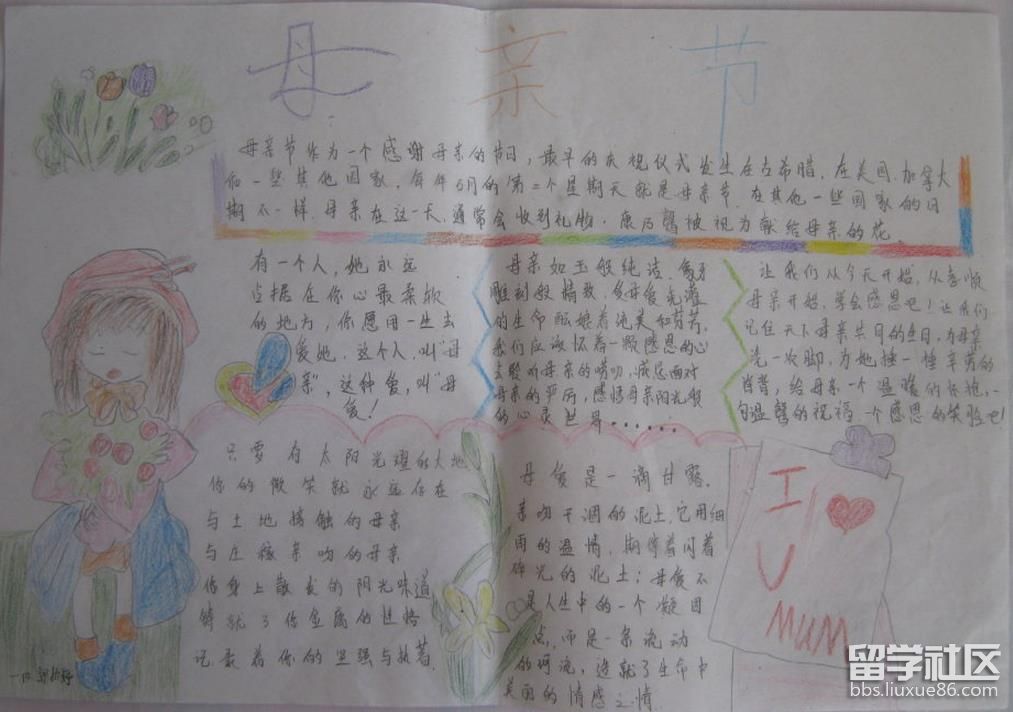 母亲节
母亲节作为一个感谢母亲的节日，最早的庆祝仪式发生在古希腊，在美国、加拿大
和一些其他国家，每年5月的第二个星期天就是母亲节，在其他一些国家的日
期不一样，母亲在这一天，通常会收到礼物，康乃馨被视为献给母亲的花。
有一个人，她永远
占据在你心最柔软
的地方，你愿用一生去
爱她，这个人，叫“母
亲”，这种爱，叫“母
爱！
母亲如玉般纯洁，象牙
雕刻般精致，
的生命酝酿着纯美和芬芳，
我们应该怀着一颗感恩的心
去聆听母亲的唠叨，
母亲的严厉，感悟母亲阳光般
的心灵世界......
让我们从今天开始，从孝顺
母亲开始，学会感恩吧！让我们
记住天下母亲共同的生日，为母亲
洗一次脚，为她捶一捶辛劳的
背，给母亲一个温暖的怀抱，一
句温馨的祝福一个感恩的笑脸吧！
只要有太阳光耀的大地
你的微笑就永远存在
与土地接触的母亲
与庄稼亲吻的母亲
你身上散发的阳光味道
铸就了你金属的性格
记载着你的坚强与执着
母爱是一滴甘露，
亲吻干涸的泥土，它用细
雨的温情，期待着闪着
碎光的泥土；母爱不
是人生中的一个凝固
点，而是一条流动
的河流，造就了生命中
美丽的情感之情
I
U
MUM
留学社区
bbs.liuxue86.com